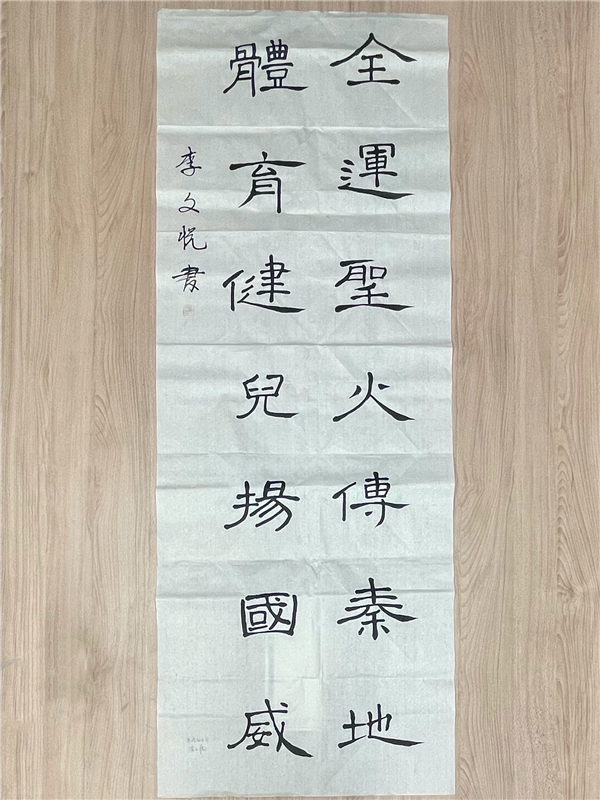 全運聖火傳秦地
體育健兒揚國威
李文悦書